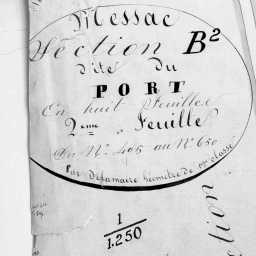 Messac
Section B²
dite du
PORT
En huit Feuilles
2eme Feuille
Du N° 405 au N° 650
Par Delamaire Géomètre de 1re classe
1
1.250
ction